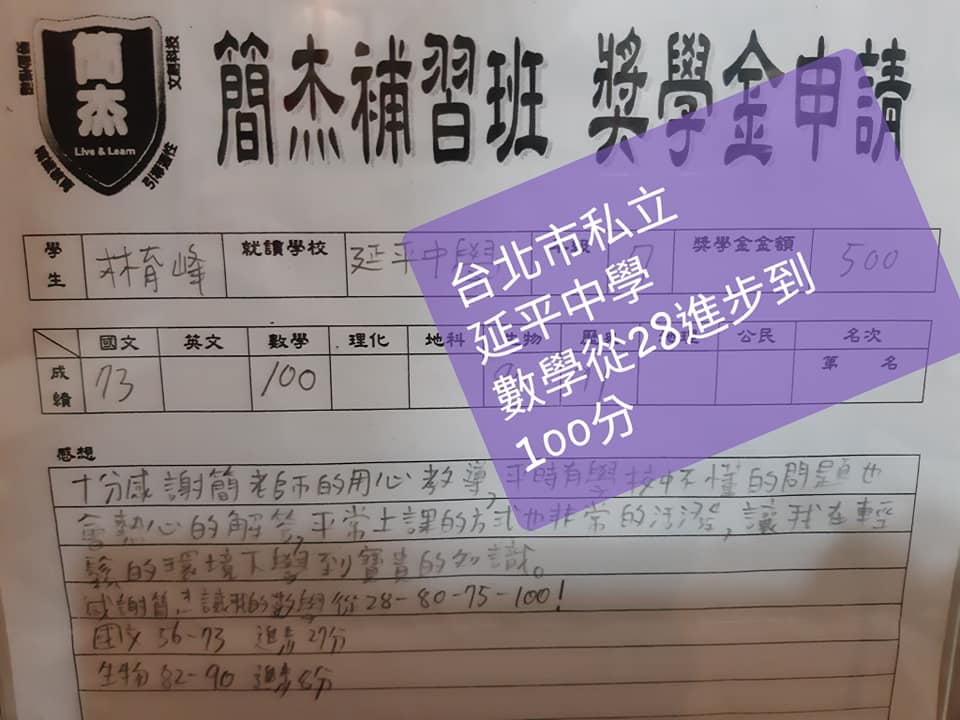 簡杰
Live & Learn
簡杰補習班 獎學金申請
學生 林育峰 就讀學校 延平中學 7 獎學金金額 500
台北市私立
延平中學
數學從28進步到
100分
國文 英文 數學 理化 地科 生物 公民 名次
成績 73 100 第 名
感想
十分感謝簡老師的用心教導,平時有學校中不懂的問題也
會熱心的解答,平常上課的方式也非常的活潑,讓我在輕
鬆的環境下學到寶貴的知識。
感謝簡杰讓我的數學從28-80-75-100!
國文 56-73 進步 27分
生物 82-90 進步 8分